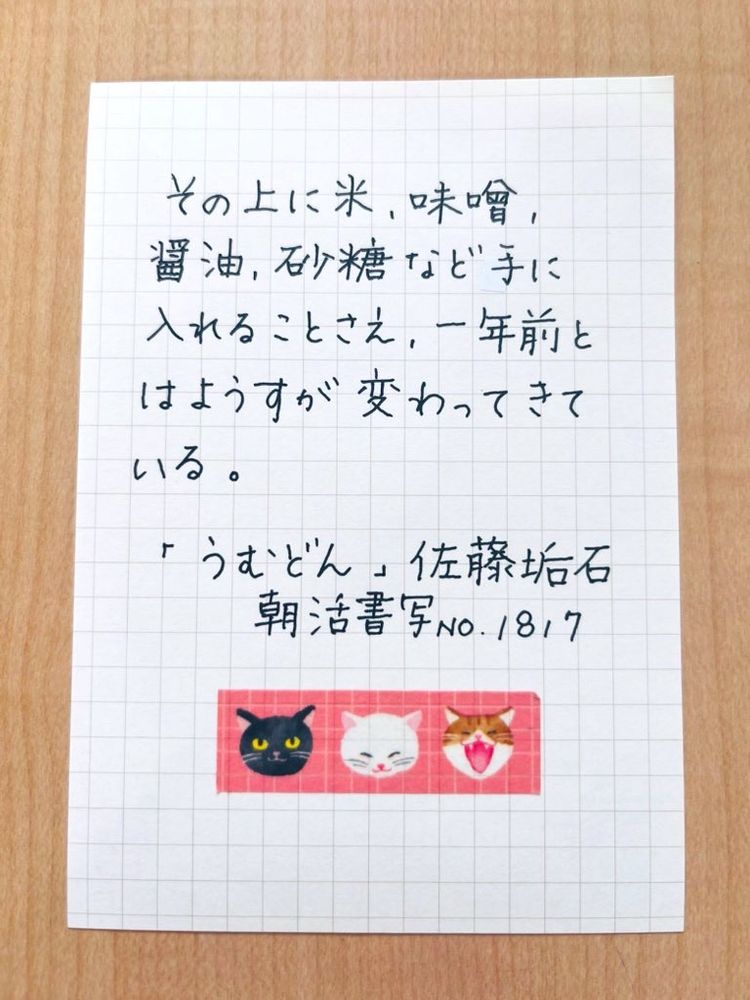 その上に米,味噌,
醤油,砂糖など手に
入れることさえ,一年前と
はようすが変わってきて
いる。
「うむどん」佐藤垢石
朝活書写NO.1817